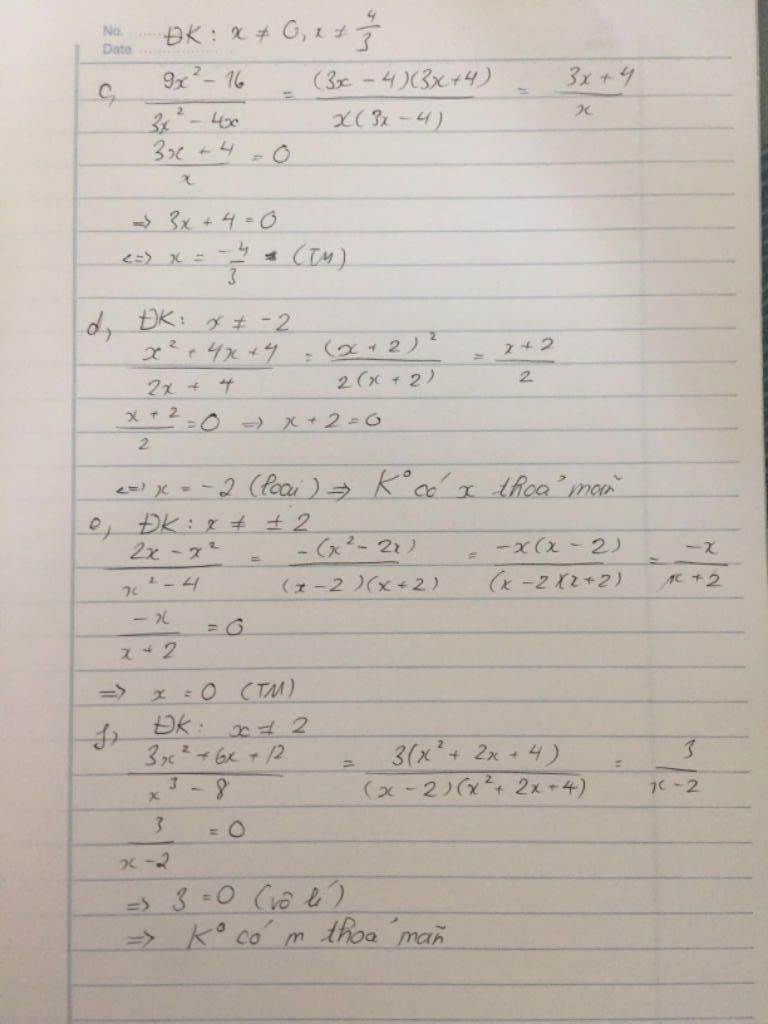 No. ........ ĐK : x ≠ 0, x ≠ 4/3
Date ................
c, (9x² - 16)/(3x² - 4x) = ((3x - 4)(3x + 4))/(x(3x - 4)) = (3x + 4)/x
(3x + 4)/x = 0
=> 3x + 4 = 0
<=> x = -4/3 (TM)
d, ĐK: x ≠ -2
(x² + 4x + 4)/(2x + 4) = (x + 2)²/(2(x + 2)) = (x + 2)/2
(x + 2)/2 = 0 => x + 2 = 0
<=> x = -2 (loại) => K° có x thoả mãn
e, ĐK: x ≠ ± 2
(2x - x²)/(x² - 4) = (-(x² - 2x))/((x - 2)(x + 2)) = (-x(x - 2))/((x - 2)(x + 2)) = -x/(x + 2)
-x/(x + 2) = 0
=> x = 0 (TM)
f, ĐK: x ≠ 2
(3x² + 6x + 12)/(x³ - 8) = (3(x² + 2x + 4))/((x - 2)(x² + 2x + 4)) = 3/(x - 2)
3/(x - 2) = 0
=> 3 = 0 (vô lí)
=> K° có m thoả mãn